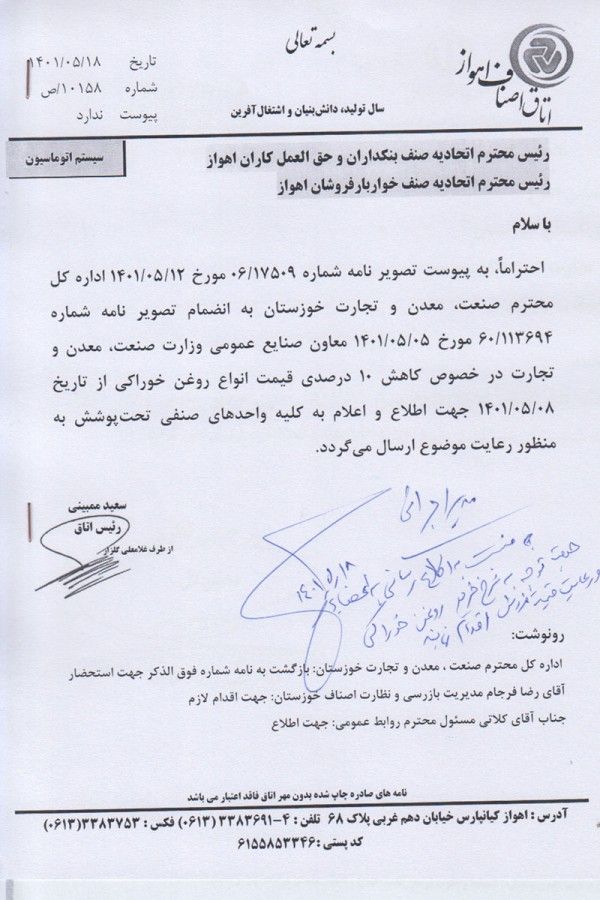 بسمه تعالی
اتاق اصناف اهواز
تاریخ ۱۴۰۱/۰۵/۱۸
شماره ۱۰۱۵۸/ص
پیوست ندارد
سال تولید، دانش‌بنیان و اشتغال‌آفرین
سیستم اتوماسیون
رئیس محترم اتحادیه صنف بنکداران و حق العمل کاران اهواز
رئیس محترم اتحادیه صنف خواربارفروشان اهواز
با سلام
احتراماً، به پیوست تصویر نامه شماره ۰۶/۱۷۵۰۹ مورخ ۱۴۰۱/۰۵/۱۲ اداره کل
محترم صنعت، معدن و تجارت خوزستان به انضمام تصویر نامه شماره
۶۰/۱۱۳۶۹۴ مورخ ۱۴۰۱/۰۵/۰۵ معاون صنایع عمومی وزارت صنعت، معدن و
تجارت در خصوص کاهش ۱۰ درصدی قیمت انواع روغن خوراکی از تاریخ
۱۴۰۱/۰۵/۰۸ جهت اطلاع و اعلام به کلیه واحدهای صنفی تحت‌پوشش به
منظور رعایت موضوع ارسال می‌گردد.
سعید ممبینی
رئیس اتاق
از طرف غلامعلی گلزار
مدیر اجرائی
اطلاع رسانی
روغن خوراکی
اقدام
رونوشت:
اداره کل محترم صنعت ، معدن و تجارت خوزستان: بازگشت به نامه شماره فوق الذکر جهت استحضار
آقای رضا فرجام مدیریت بازرسی و نظارت اصناف خوزستان: جهت اقدام لازم
جناب آقای کلاتی مسئول محترم روابط عمومی: جهت اطلاع
نامه های صادره چاپ شده بدون مهر اتاق فاقد اعتبار می باشد
آدرس : اهواز کیانپارس خیابان دهم غربی پلاک ۶۸ تلفن : ۴-۳۳۸۳۶۹۱ (۰۶۱۳) فکس : ۳۳۸۳۷۵۳(۰۶۱۳)
کد پستی : ۶۱۵۵۸۵۳۳۴۶